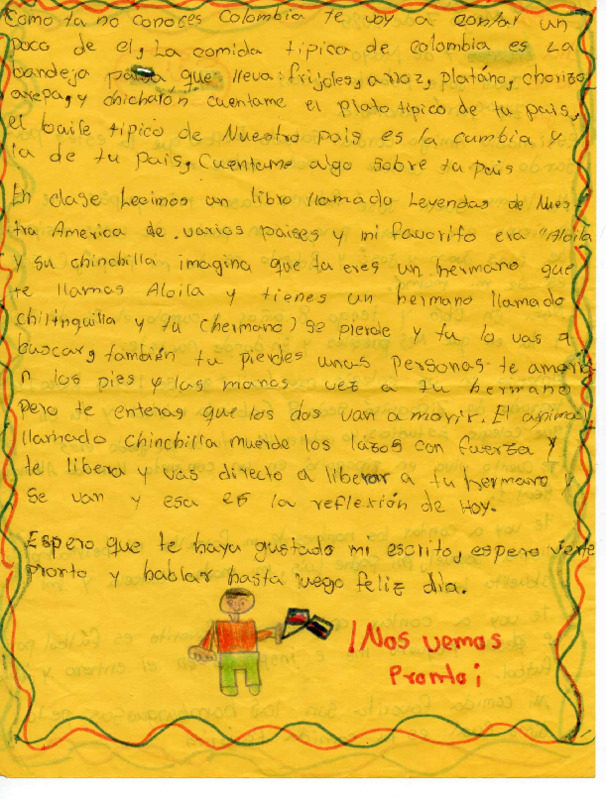 Como tu no conoces Colombia te voy a contar un
poco de el, La comida tipica de colombia es La
bandeja paisa que lleva: frijoles, arroz, platáno, chorizo
arepa, y chicharón cuentame el plato tipico de tu pais,
el baile tipico de Nuestro pais es la cumbia y
la de tu pais, Cuentame algo sobre tu pais
En clase Leeimos un libro llamado Leyendas de Nues-
tra America de varios paises y mi favorito era "Aloila
y su chinchilla imagina que tu eres un hermano que
te llamas Aloila y tienes un hermano llamado
chiltnquilla y tu (hermano) se pierde y tu lo vas a
buscar, también tu pierdes unas personas te amarra
n los pies y las manos vez a tu hermano
Pero te enteras que los dos van a morir. El animal
llamado chinchilla muerde los lazos con fuerza y
te libera y vas directo a liberar a tu hermano y
se van y esa es la reflexión de Hoy.
Espero que te haya gustado mi escrito, espero verte
pronto y hablar hasta luego feliz día.
¡Nos vemos
Pronto¡